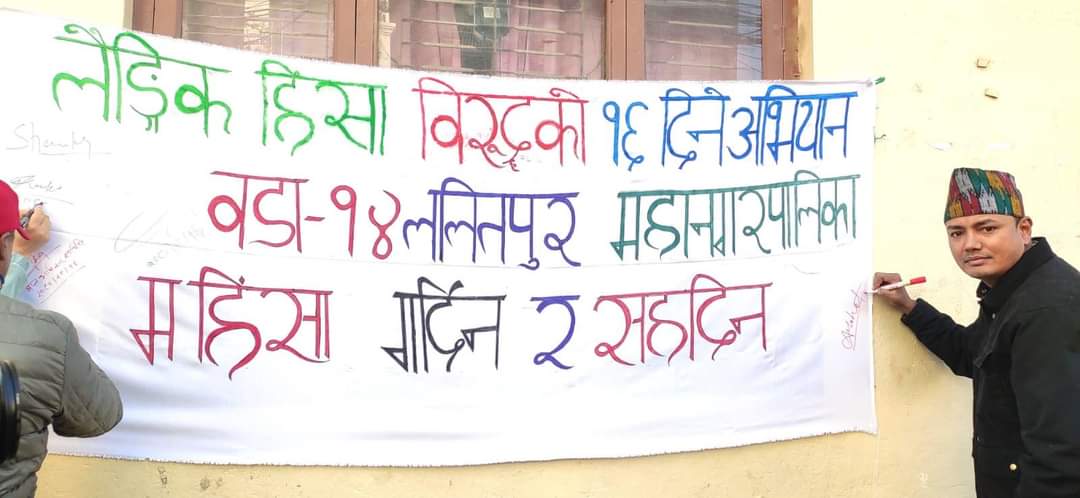 लैङ्गिक हिंसा विरूद्धको १६ दिने अभियान
वडा-१४ ललितपुर महानगरपालिका
म हिंसा गर्दिन र सहदिन